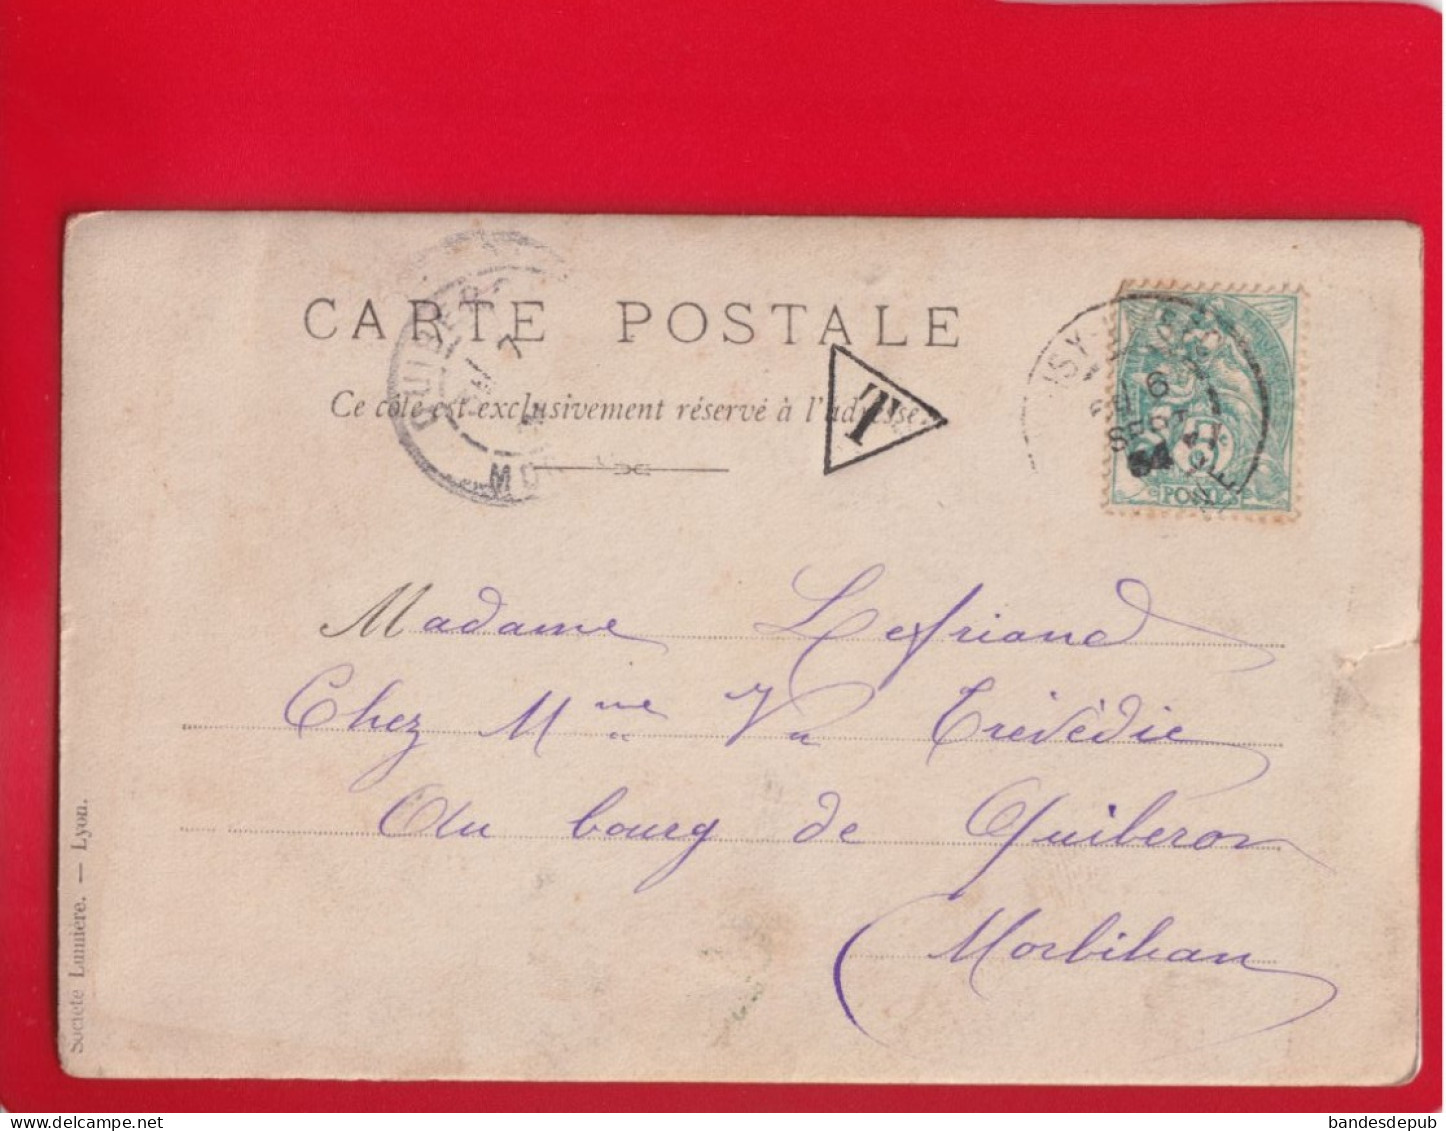 CARTE POSTALE
Ce côté est exclusivement réservé à l'adresse
T
6
SEPT
04
5
POSTES
QUIBERON
7
MOR
Madame Lefriand
Chez Mme Vve Trévédie
Au bourg de Quiberon
Morbihan
Société Lumière. — Lyon.
bandesdepub